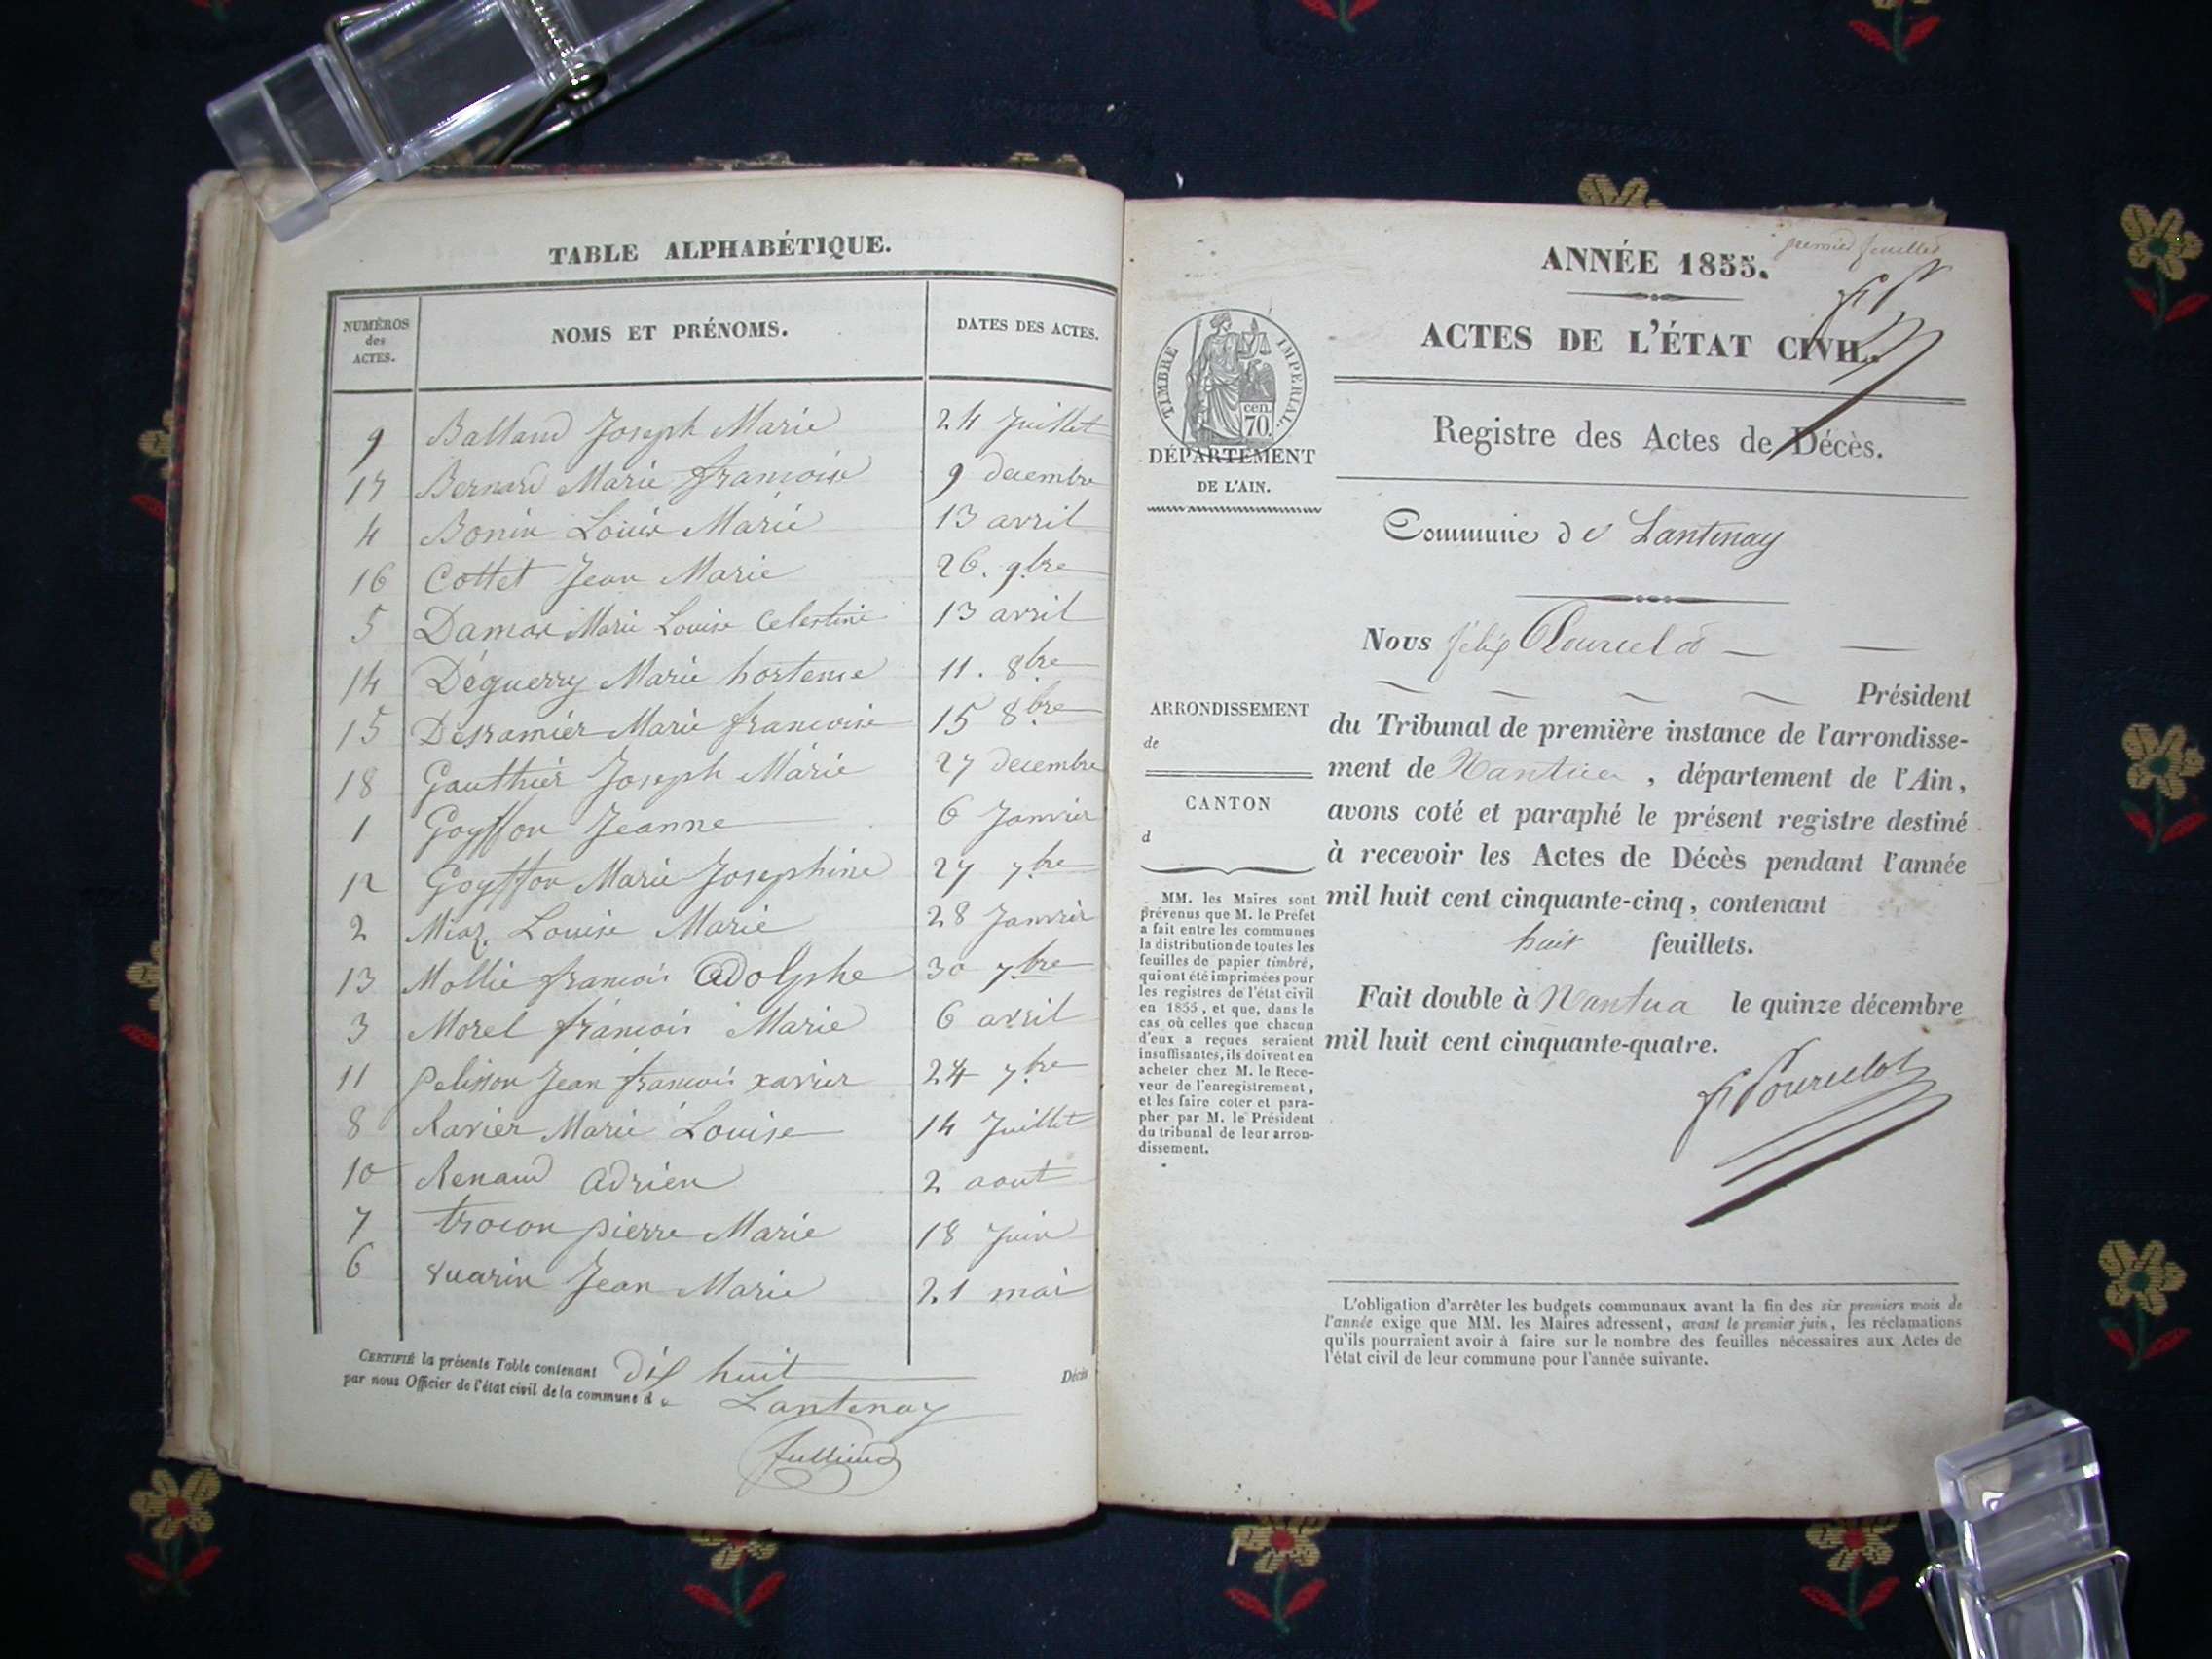 TABLE ALPHABÉTIQUE.
NUMÉROS
des
ACTES.
NOMS ET PRÉNOMS.
DATES DES ACTES.
9 Balland Joseph Marie 24 Juillet
17 Bernard Marie françoise 9 decembre
4 Bonin Louise Marie 13 avril
16 Cottet Jean Marie 26. 9bre
5 Damas Marie Louise Celestine 13 avril
14 Déguerry Marie hortense 11. 8bre
15 Desramiér Marie francoise 15 8bre
18 Gauthiér Joseph Marie 27 decembre
1 Goyffon Jeanne 6 Janvier
12 Goyffon Marie Josephine 27 7bre
2 Miaz Louise Marie 28 Janvier
13 Mollie francois adolphe 30 7bre
3 Morel francois Marie 6 avril
11 pelisson Jean francois xavier 24 7bre
8 Ravier Marie Louise 14 Juillet
10 Renaud adrien 2 aout
7 trocon pierre Marie 18 Juin
6 vuarin Jean Marie 21 mai
CERTIFIÉ la présente Table contenant dix huit Décès
par nous Officier de l'état civil de la commune de Lantenay
Julliand
premier feuillet
ANNÉE 1855.
ACTES DE L'ÉTAT CIVIL.
TIMBRE IMPÉRIAL.
cen.
70.
Registre des Actes de Décès.
DÉPARTEMENT
DE L'AIN.
Commune de Lantenay
Nous félix Pourcelot
Président
du Tribunal de première instance de l'arrondisse-
ment de Nantua, département de l'Ain,
avons coté et paraphé le présent registre destiné
à recevoir les Actes de Décès pendant l'année
mil huit cent cinquante-cinq, contenant
huit feuillets.
Fait double à Nantua le quinze décembre
mil huit cent cinquante-quatre.
F Pourcelot
ARRONDISSEMENT
de
CANTON
d
MM. les Maires sont
prévenus que M. le Préfet
a fait entre les communes
la distribution de toutes les
feuilles de papier timbré,
qui ont été imprimées pour
les registres de l'état civil
en 1855, et que, dans le
cas où celles que chacun
d'eux a reçues seraient
insuffisantes, ils doivent en
acheter chez M. le Rece-
veur de l'enregistrement,
et les faire coter et para-
pher par M. le Président
du tribunal de leur arron-
dissement.
L'obligation d'arrêter les budgets communaux avant la fin des six premiers mois de
l'année exige que MM. les Maires adressent, avant le premier juin, les réclamations
qu'ils pourraient avoir à faire sur le nombre des feuilles nécessaires aux Actes de
l'état civil de leur commune pour l'année suivante.